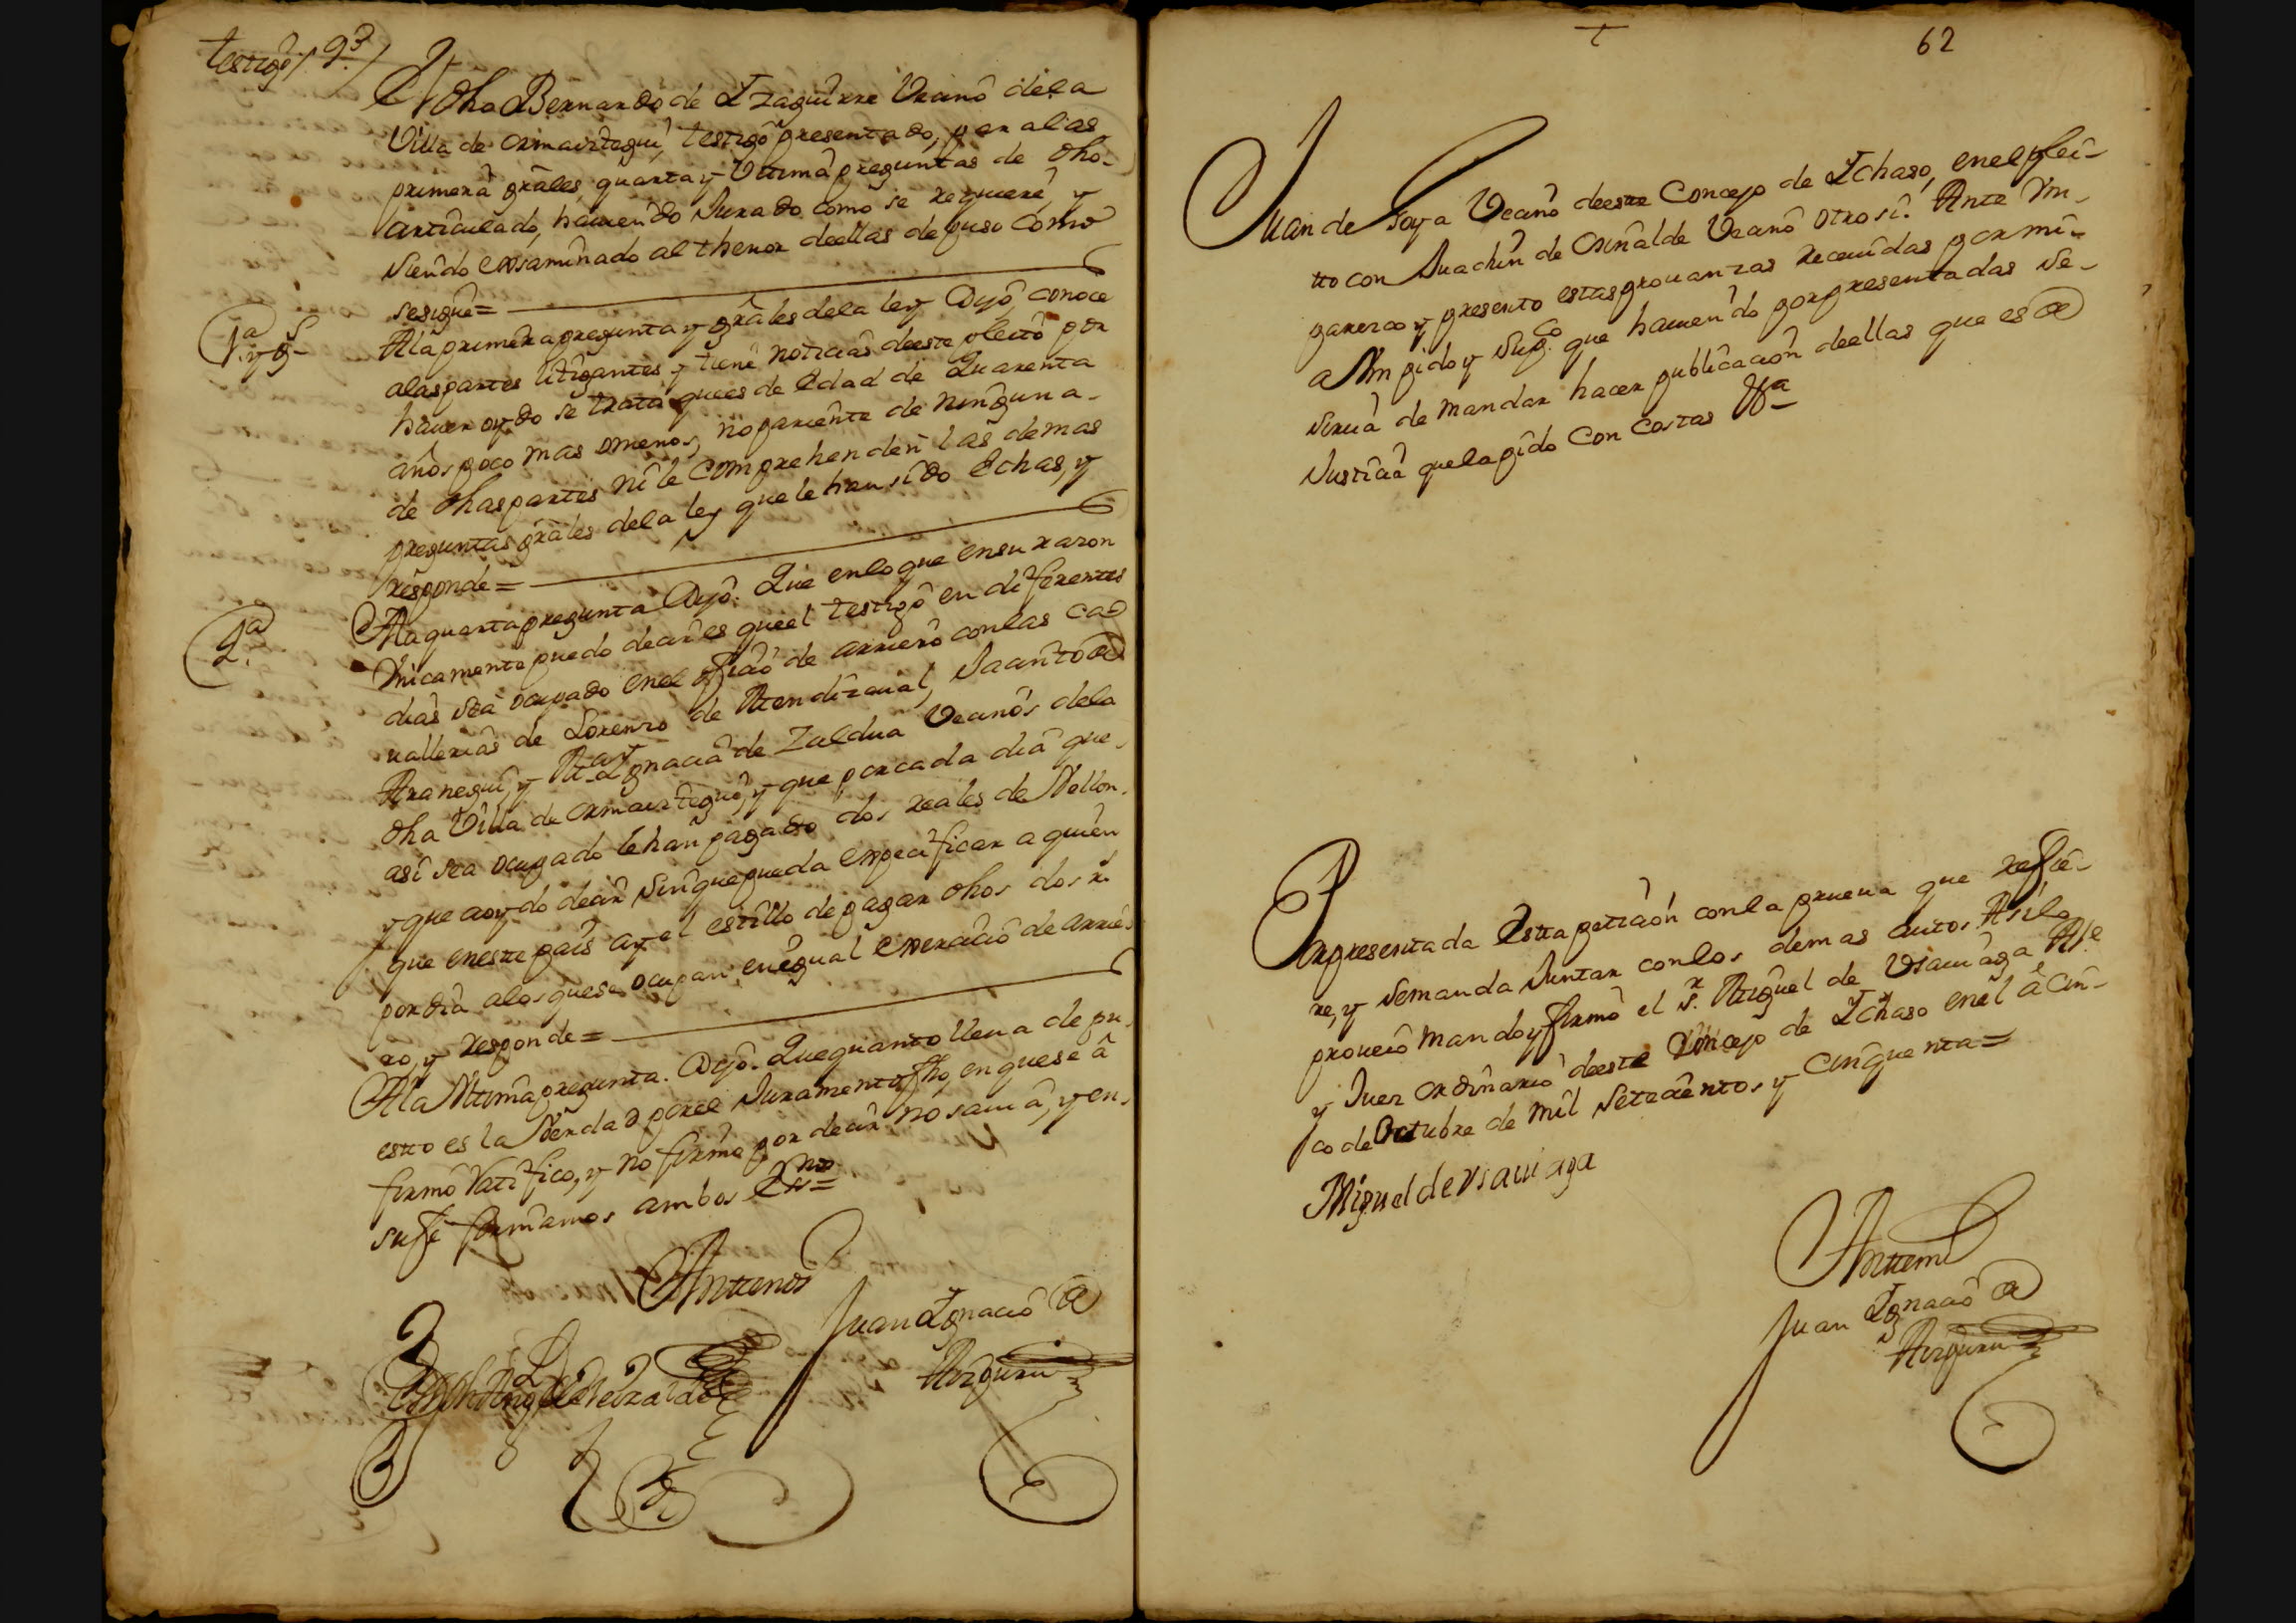 testigo / 9º /
Dho Bernardo de Yzaguirre Vecino dela
Villa de ormaiztegui, testigo presentado, para las
primera grales, quarta y Vltima preguntas de dho
articulado, hauiendo Jurado como se requiere, y
siendo exsaminado al thenor deellas depuso Como
sesigue=
1ª y gs
Ala primera pregunta y grales dela ley Dijo, conoce
alas partes litigantes y tiene noticias deeste pleito por
hauer oydo se trata que es de Edad de Quarenta
años poco mas omenos, no pariente de ninguna
de dhas partes ni le comprehenden las demas
preguntas grales dela ley que le han sido Echas, y
responde=
4ª
Ala quarta pregunta Dijo. Que enlo que ensu razon
Vnicamente puede decir es queel testigo en diferentes
dias sea ocupado enel oficio de arriero conlas ca
uallerias de Lorenzo de Atendizaual, Jacinto de
Aranegui, y Mª Ygnacia de Zaldua Vecinos dela
dha Villa de ormaiztegui, y que por cada dia que
asi sea ocupado lehan pagado dos reales de Vellon
y que aoydo decir sinque pueda expecificar a quien
que eneste pais ay el estillo de pagar dhos dos rs
por dia alos quese ocupan, enegual exercicio de arrie
ro, y responde=
Ala Vltima pregunta. Dijo. Que quanto lleua de pu
esto es la Verdad porel Juramento fho, en quese a
firmo Ratifico, y no firmo por decir no sauia, y en
su fe firmamos ambos Essnos=
Antenos
Juan Ygnacio de
Aizpuru
62
Juan de Goya Vecino deeste Concejo de Ychaso, enel plei-
tto con Juachin de Oriñalde Vecino otrosi. Ante Vm
parezco y presento estas prouanzas receuidas por mi
a Vm pido y supco que hauiendo por presentadas se
sirua de mandar hacer publicacion deellas que es de
Justicia quela pido Con Costas Vsª
Por presentada Esta peticion conla prueua que refie-
re, y semanda Juntar conlos demas autos Asilo
proueio mando y firmo el sr. Miguel de Vsauiaga Alce
y Juez ordinario deeste Concejo de Ychaso enel a Cin-
co de Octubre de mil setecientos y cinquenta=
Miguel de Vsauiaga
Antemi
Juan Ygnacio de
Aizpuru